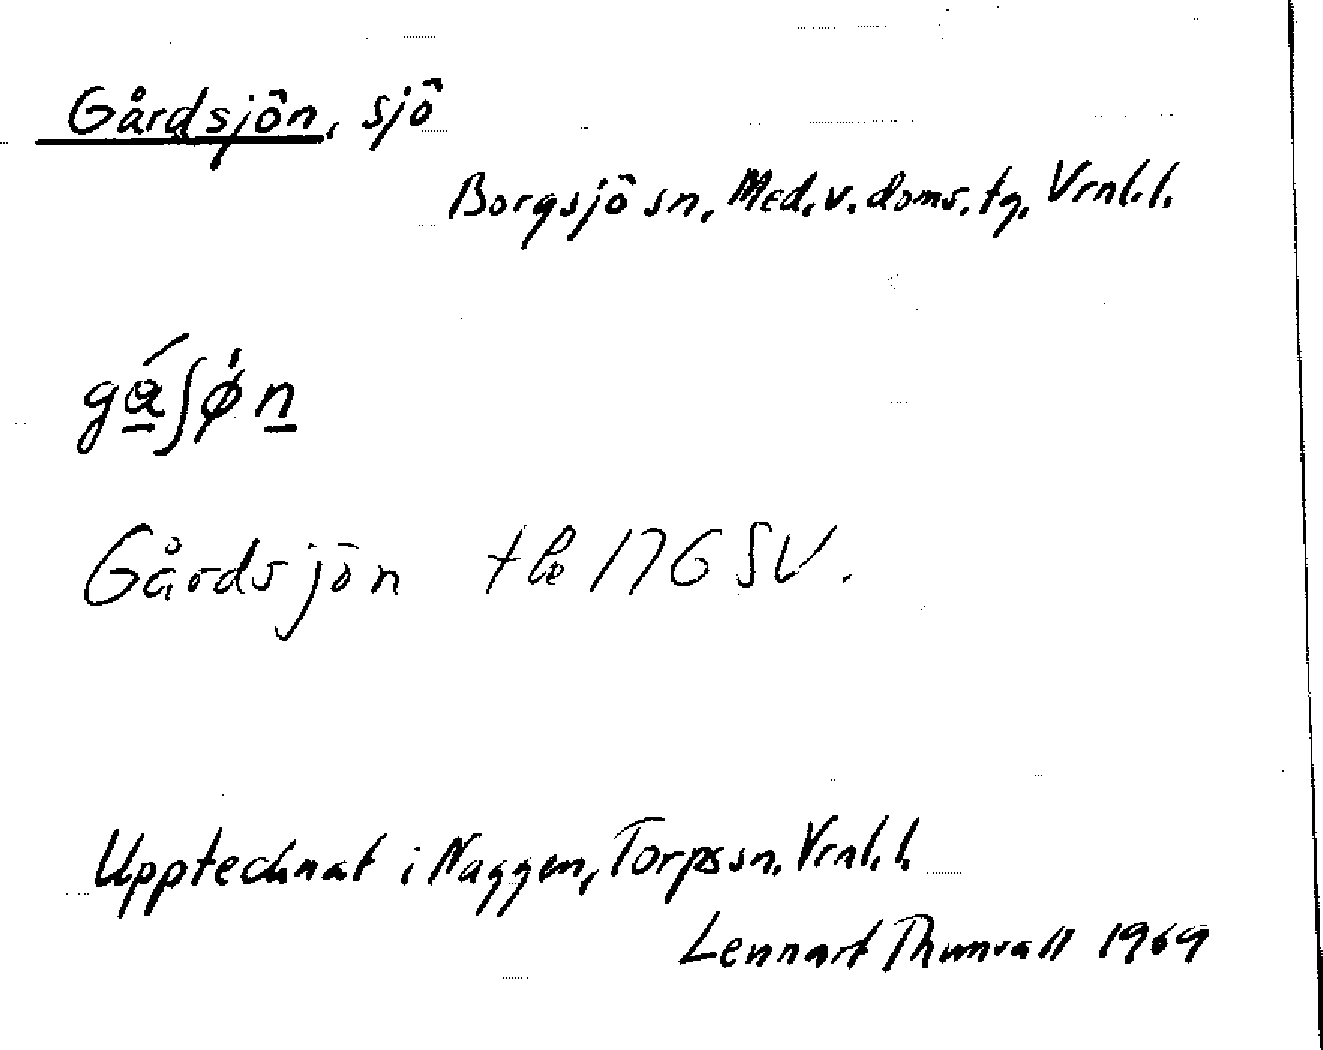 Gårdsjön, sjö
Borgsjö sn, Med. v. doms. tg, Vrnl. l.
Gårdsjön tlo 17G SV.
Upptecknat i Naggen, Torps sn. Vrnl. l.
Lennart Thunvall 1969